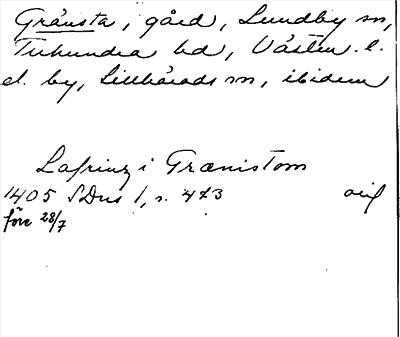 Gränsta, gård, Lundby sn,
Tuhundra hd, Västm. l.
el. by, Lillhärads sn, ibidem
Lafrinz i Grænistom
1405 SDns 1, s. 473
före 28/7